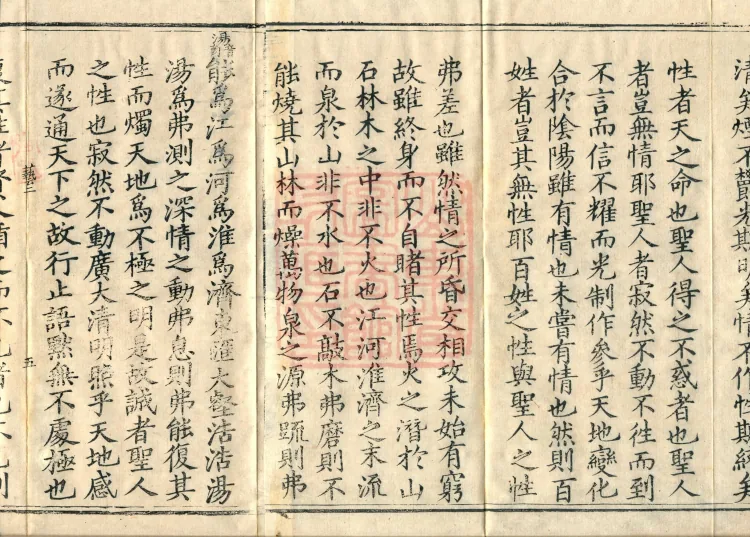 清矣煙不鬱光斯明矣情不作性斯經矣
性者天之命也聖人得之不惑者也聖人
者豈無情耶聖人者寂然不動不徃而到
不言而信不耀而光制作參乎天地變化
合於陰陽雖有情也未嘗有情也然則百
姓者豈其無性耶百姓之性與聖人之性
弗差也雖然情之所昏交相攻未始有窮
故雖終身而不自睹其性焉火之潛於山
石林木之中非不火也江河淮濟之未流
而泉於山非不水也石不敲木弗磨則不
能燒其山林而燥萬物泉之源弗䟽則弗
能爲江爲河爲淮爲濟東滙大壑浩浩湯
湯爲弗測之深情之動弗息則弗能復其
性而燭天地爲不極之明是故誠者聖人
之性也寂然不動廣大清明照乎天地感
而遂通天下之故行止語默無不處極也
藝二
五